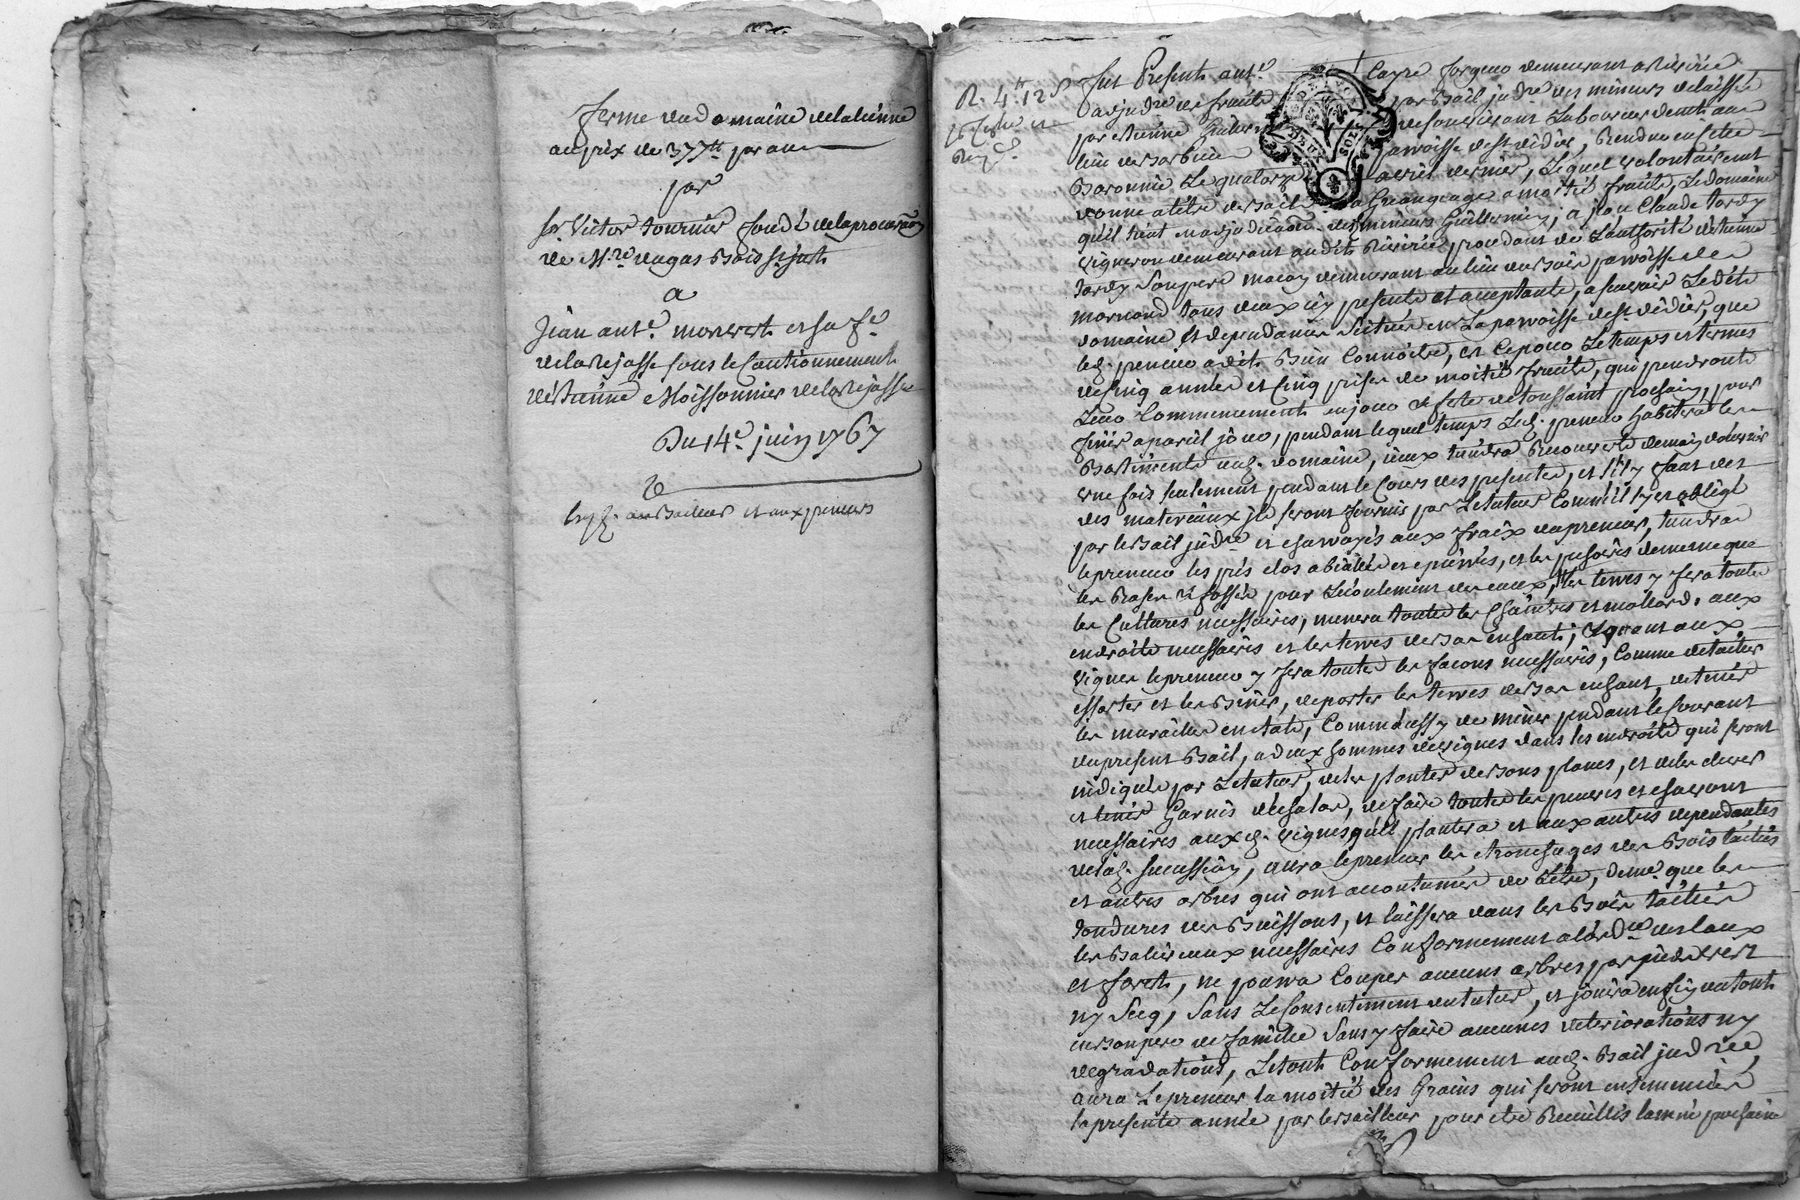 ferme du domaine delabenne
au prix de 377tt par an
par
sr Victor tournier fondé de la procuration
de Mre dugas Bois st just
a
Jean ante monvert et sa fe
de la rejasse sous le Cautionnement
d'étienne Moissonnier de la rejasse
Du 14e juin 1767
au Bailleur et aux preneurs
R. 4tt 12s
fut Present ante Cayre forgeur demeurant a
adjudre des fruits par Bail judre des mineurs delaissés
par etienne Guillermin vivant Laboureur dudit
lieu paroisse de st didier, Rendue en cette
Baronnie Le quatorze avril dernier, Lequel volontairement
donne a titre de Bail a Grangeage a moitié fruits, Le domaine
qu'il tient en adjudication des mineurs Guillermin, a jean Claude tardy
vigneron demeurant audit procédant de L'authorité d'étienne
tardy Son pere maçon demeurant au lieu paroisse de
mornand tous deux icy presents et acceptants, a scavoir Ledit
domaine et dependances Scitués en La paroisse de st didier, que
led. preneur a dit Bien Connoitre, et Ce pour Le temps et termes
de Cinq années et Cinq prises de moitié fruits, qui prendront
Leur Commencement au jour et fete de toussaint prochain, pour
finir a pareil jour, pendant lequel temps Led. preneur habitera les
Bastiments dud. domaine, iceux tiendra Recouverts de main d'ouvrier
une fois seulement pendant le Cours des presentes, et s'il y faut des
des matereaux ils seront fournis par Le tuteur Comme il s'y est obligé
par le Bail judre et charroyés aux fraix du preneur, tiendra
le preneur les prés clos et epierrés, et les de meme que
les Rases et fossés pour L'ecoulement des eaux, les terres y fera toutes
les Cultures necessaires, menera toutes les Chaintres et mollards aux
endroits necessaires et les terres de bas en haut; Et quant aux
vignes le preneur y fera toutes les façons necessaires, Comme de tailler
essarter et les Biner, de porter les terres de bas en haut, de tenir
les murailles en etat, Comm'aussy de miner pendant le Courant
du present Bail, a deux hommes de vignes dans les endroits qui seront
indiqués par Le tuteur, de les planter de Bons plans, et de les elever
et tenir Garnis d'echalas, de faire toutes les et
necessaires auxd. vignes qu'il plantera et aux autres dependantes
de lad. succession, aura le preneur les etronchages des Bois taillis
et autres arbres qui ont accoutumés de L'etre, de me que les
tondures des Buissons, et laissera dans les Bois taillis
les Baliveaux necessaires Conformement a l'ordce des Eaux
et forets, ne pourra Couper aucuns arbres par pied vert
ny Secq, Sans Le Consentement du tuteur, et jouira enfin du tout
en Bon pere de famille Sans y faire aucunes deteriorations ny
degradations, Le tout Conformement aud. Bail judre,
aura Le preneur la moitié des Grains qui seront ensemencés
la presente année par le Bailleur pour etre Recueillis l'année prochaine